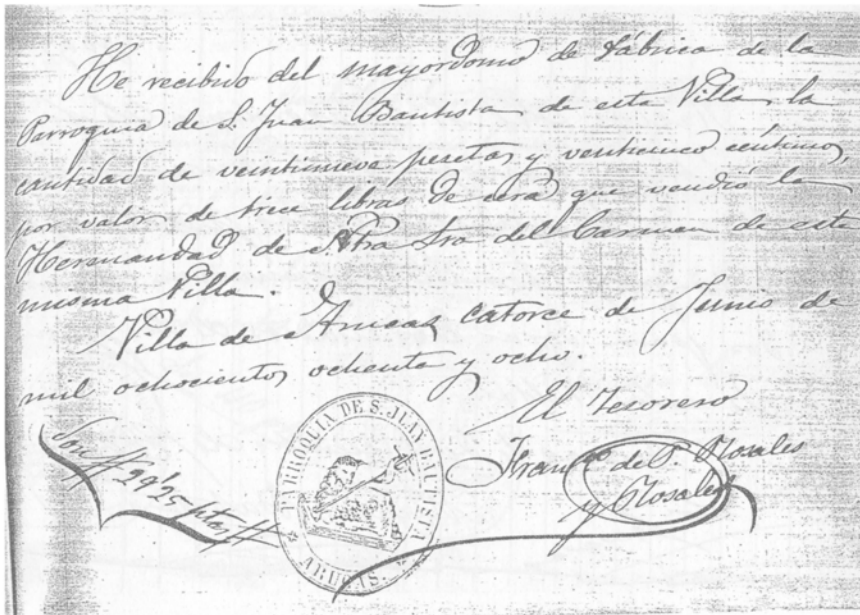 He recibido del mayordomo de Fábrica de la
Parroquia de S. Juan Bautista de esta Villa la
cantidad de veintinueve pesetas y venticinco céntimos,
por valor de trece libras de cera que vendió la
Hermandad de Ntra Sra del Carmen de esta
misma Villa.
Villa de Arucas catorce de Junio de
mil ochocientos ochenta y ocho.
El Tesorero
Franco de P. Rosales
y Rosales
Son # 29'25 ptas #
PARROQUIA DE S. JUAN BAUTISTA
ARUCAS.